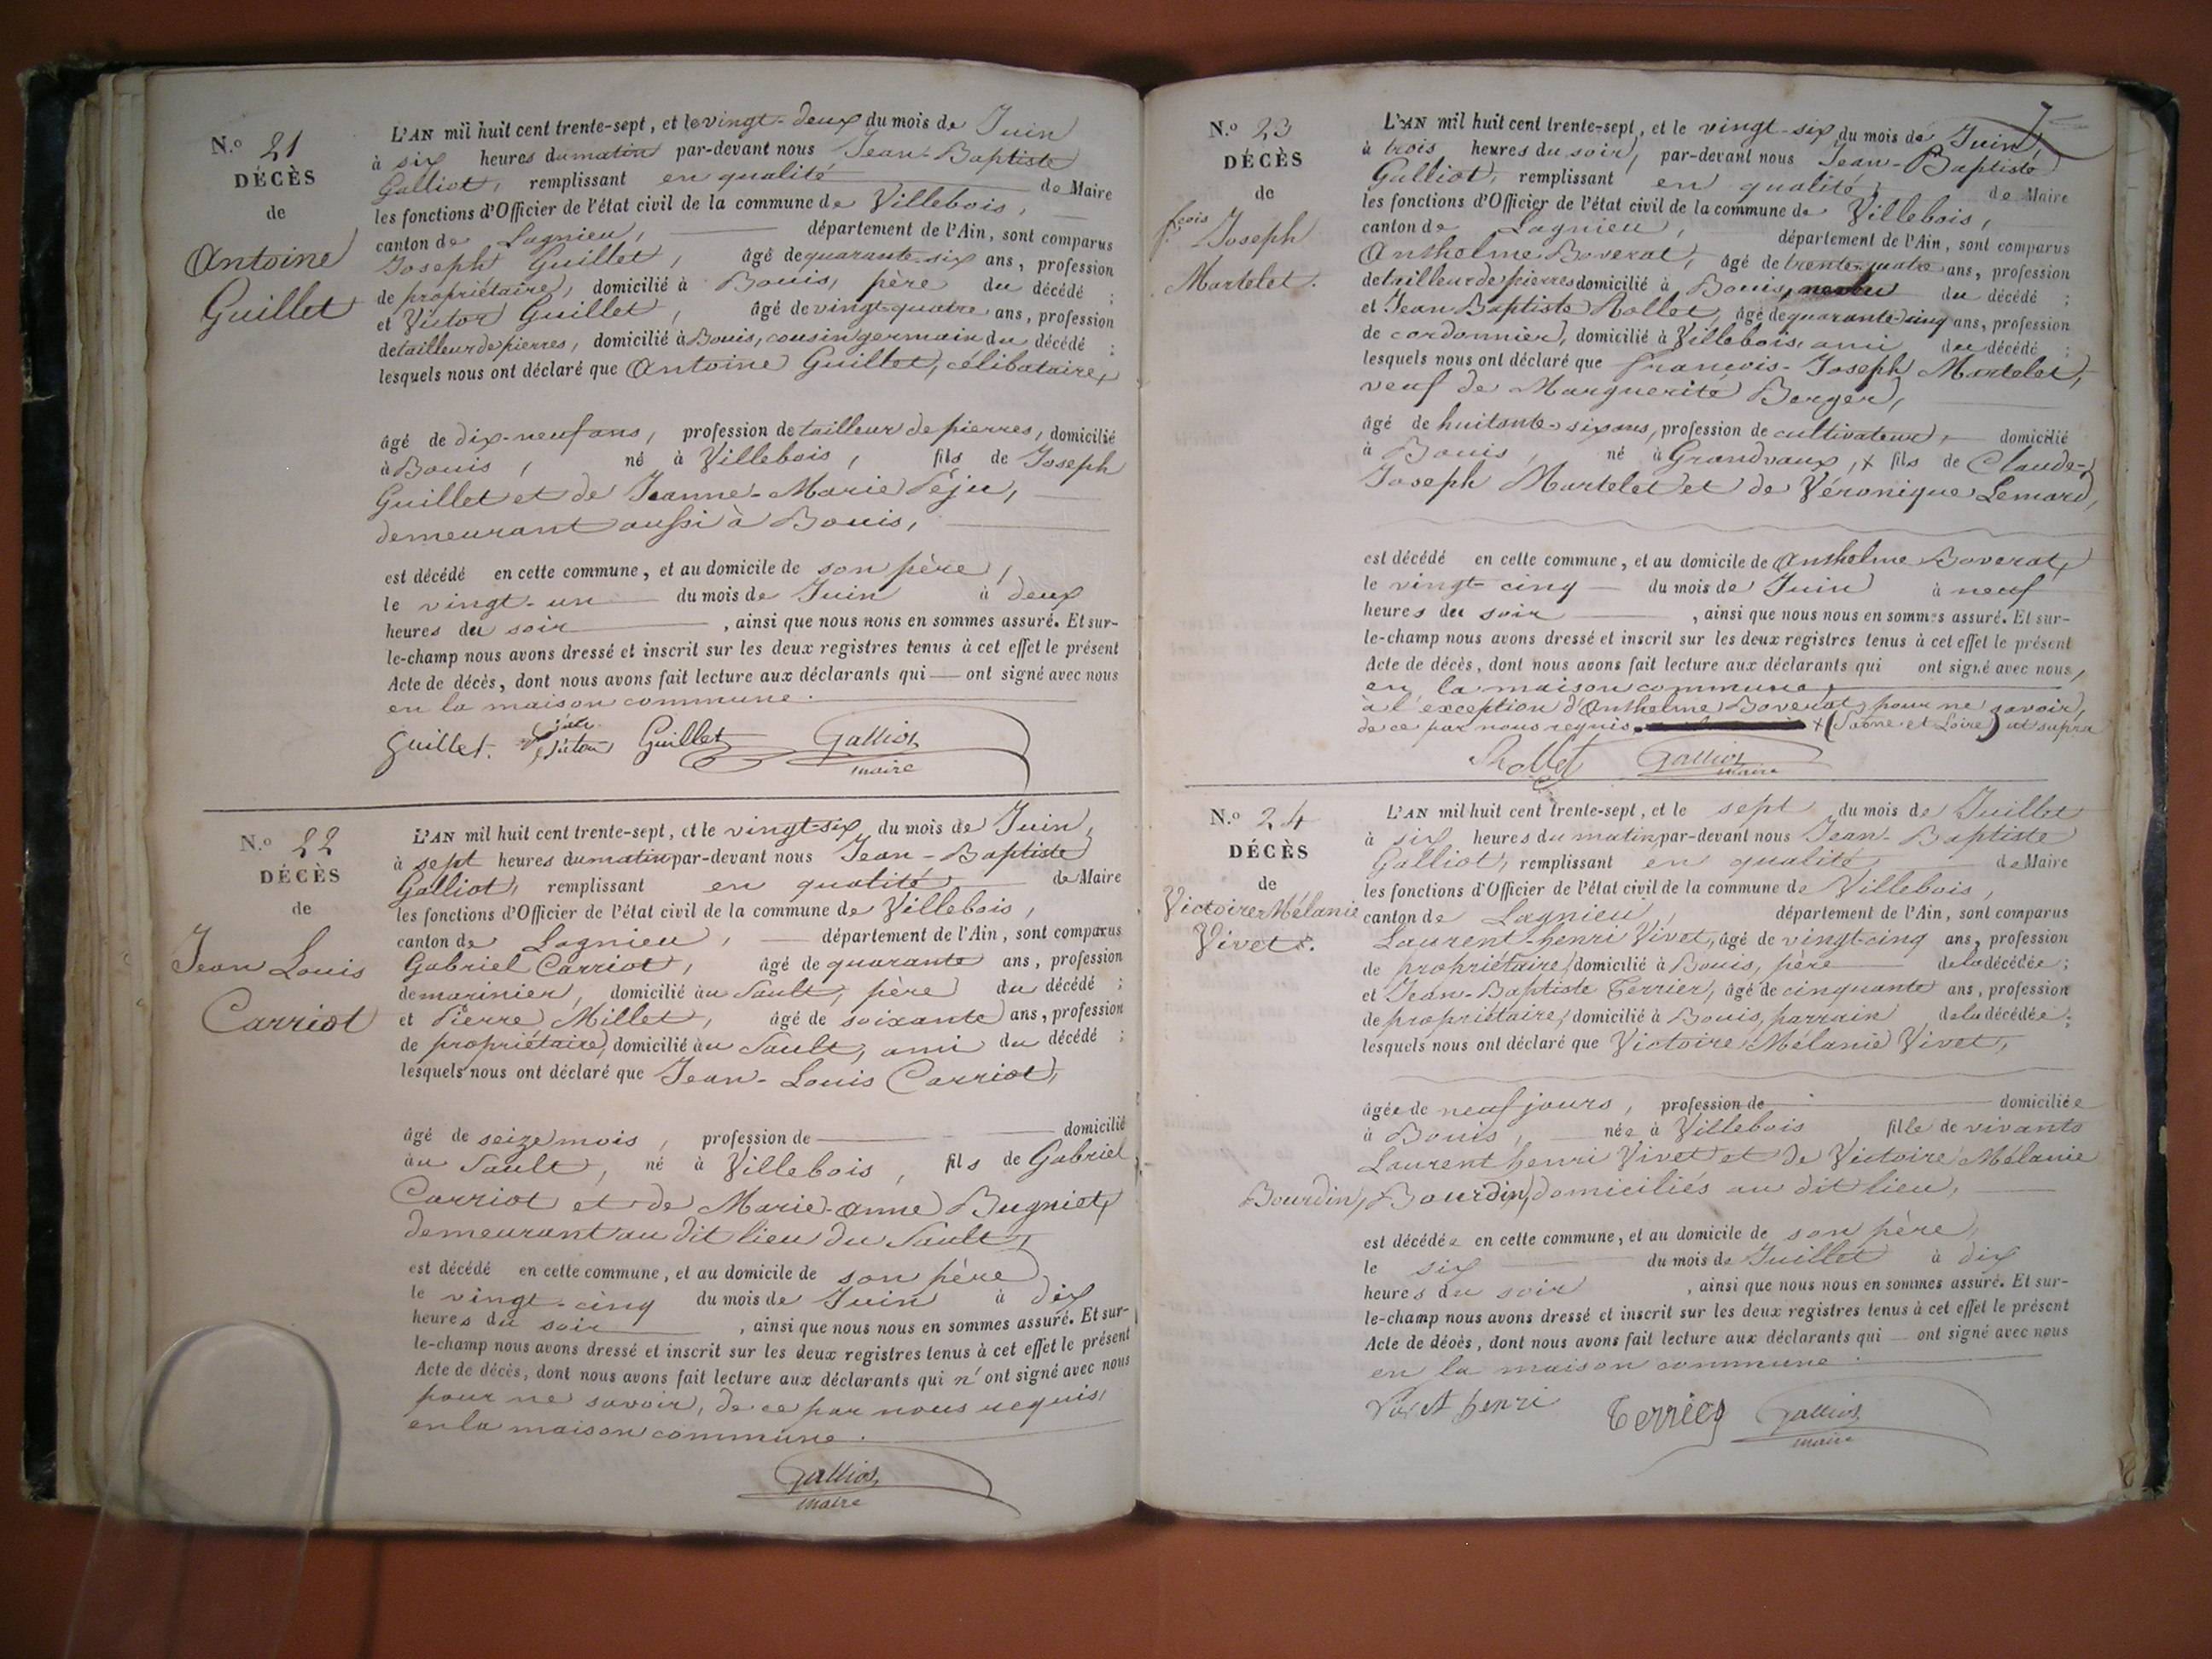 N.º 21
DÉCÈS
de
Antoine
Guillet
L'AN mil huit cent trente-sept, et le vingt-deux du mois de Juin
à six heures du matin par-devant nous Jean-Baptiste
Galliot, remplissant en qualité de Maire
les fonctions d'Officier de l'état civil de la commune de Villebois,
canton de Lagnieu, département de l'Ain, sont comparus
Joseph Guillet, âgé de quarante-six ans, profession
de propriétaire, domicilié à Bouis, père du décédé ;
et Victor Guillet, âgé de vingt-quatre ans, profession
de tailleur de pierres, domicilié à Bouis, cousin germain du décédé ;
lesquels nous ont déclaré que Antoine Guillet, célibataire,
âgé de dix-neuf ans, profession de tailleur de pierres, domicilié
à Bouis, né à Villebois, fils de Joseph
Guillet et de Jeanne-Marie Péju,
demeurant aussi à Bouis,
est décédé en cette commune, et au domicile de son père,
le vingt-un du mois de Juin à deux
heures du soir, ainsi que nous nous en sommes assuré. Et sur-
le-champ nous avons dressé et inscrit sur les deux registres tenus à cet effet le présent
Acte de décès, dont nous avons fait lecture aux déclarants qui ont signé avec nous
en la maison commune.
Guillet. Victor Guillet Galliot
maire
N.º 22
DÉCÈS
de
Jean Louis
Carriot
L'AN mil huit cent trente-sept, et le vingt-six du mois de Juin,
à sept heures du matin par-devant nous Jean-Baptiste
Galliot, remplissant en qualité de Maire
les fonctions d'Officier de l'état civil de la commune de Villebois,
canton de Lagnieu, département de l'Ain, sont comparus
Gabriel Carriot, âgé de quarante ans, profession
de marinier, domicilié au Sault, père du décédé ;
et Pierre Millet, âgé de soixante ans, profession
de propriétaire, domicilié au Sault, ami du décédé ;
lesquels nous ont déclaré que Jean-Louis Carriot,
âgé de seize mois, profession de domicilié
au Sault, né à Villebois, fils de Gabriel
Carriot et de Marie-Anne Bugniet,
demeurant au dit lieu du Sault,
est décédé en cette commune, et au domicile de son père,
le vingt-cinq du mois de Juin à dix
heures du soir, ainsi que nous nous en sommes assuré. Et sur-
le-champ nous avons dressé et inscrit sur les deux registres tenus à cet effet le présent
Acte de décès, dont nous avons fait lecture aux déclarants qui n'ont signé avec nous
pour ne savoir, de ce par nous requis,
en la maison commune.
Galliot
maire
7
N.º 23
DÉCÈS
de
f.çois Joseph
Martelet.
L'AN mil huit cent trente-sept, et le vingt-six du mois de Juin,
à trois heures du soir, par-devant nous Jean-Baptiste
Galliot, remplissant en qualité, de Maire
les fonctions d'Officier de l'état civil de la commune de Villebois,
canton de Lagnieu, département de l'Ain, sont comparus
Anthelme Boverat, âgé de trente-quatre ans, profession
de tailleur de pierres domicilié à Bouis, neveu du décédé ;
et Jean Baptiste Rollet, âgé de quarante-cinq ans, profession
de cordonnier, domicilié à Villebois, ami du décédé ;
lesquels nous ont déclaré que François-Joseph Martelet,
veuf de Marguerite Berger,
âgé de huitante-six ans, profession de cultivateur, domicilié
à Bouis, né à Grandvaux, + fils de Claude-
Joseph Martelet et de Véronique Lemard,
est décédé en cette commune, et au domicile de Anthelme Boverat,
le vingt-cinq du mois de Juin à neuf
heures du soir, ainsi que nous nous en sommes assuré. Et sur-
le-champ nous avons dressé et inscrit sur les deux registres tenus à cet effet le présent
Acte de décès, dont nous avons fait lecture aux déclarants qui ont signé avec nous,
en la maison commune,
à l'exception d'Anthelme Boverat, pour ne savoir,
de ce par nous requis. + (Saône et Loire) ut supra
Rollet Galliot
maire
N.º 24
DÉCÈS
de
Victoire Mélanie
Vivet.
L'AN mil huit cent trente-sept, et le sept du mois de Juillet
à six heures du matin par-devant nous Jean-Baptiste
Galliot, remplissant en qualité de Maire
les fonctions d'Officier de l'état civil de la commune de Villebois,
canton de Lagnieu, département de l'Ain, sont comparus
Laurent-henri Vivet, âgé de vingt-cinq ans, profession
de propriétaire, domicilié à Bouis, père de la décédée ;
et Jean-Baptiste Terrier, âgé de cinquante ans, profession
de propriétaire, domicilié à Bouis, parrain de la décédée ;
lesquels nous ont déclaré que Victoire Mélanie Vivet,
âgée de neuf jours, profession de domiciliée
à Bouis, née à Villebois fille de vivants
Laurent henri Vivet et de Victoire Mélanie
Bourdin, Bourdin, domiciliés au dit lieu,
est décédée en cette commune, et au domicile de son père,
le six du mois de Juillet à dix
heures du soir, ainsi que nous nous en sommes assuré. Et sur-
le-champ nous avons dressé et inscrit sur les deux registres tenus à cet effet le présent
Acte de décès, dont nous avons fait lecture aux déclarants qui ont signé avec nous
en la maison commune.
Vivet henri Terrier Galliot
maire